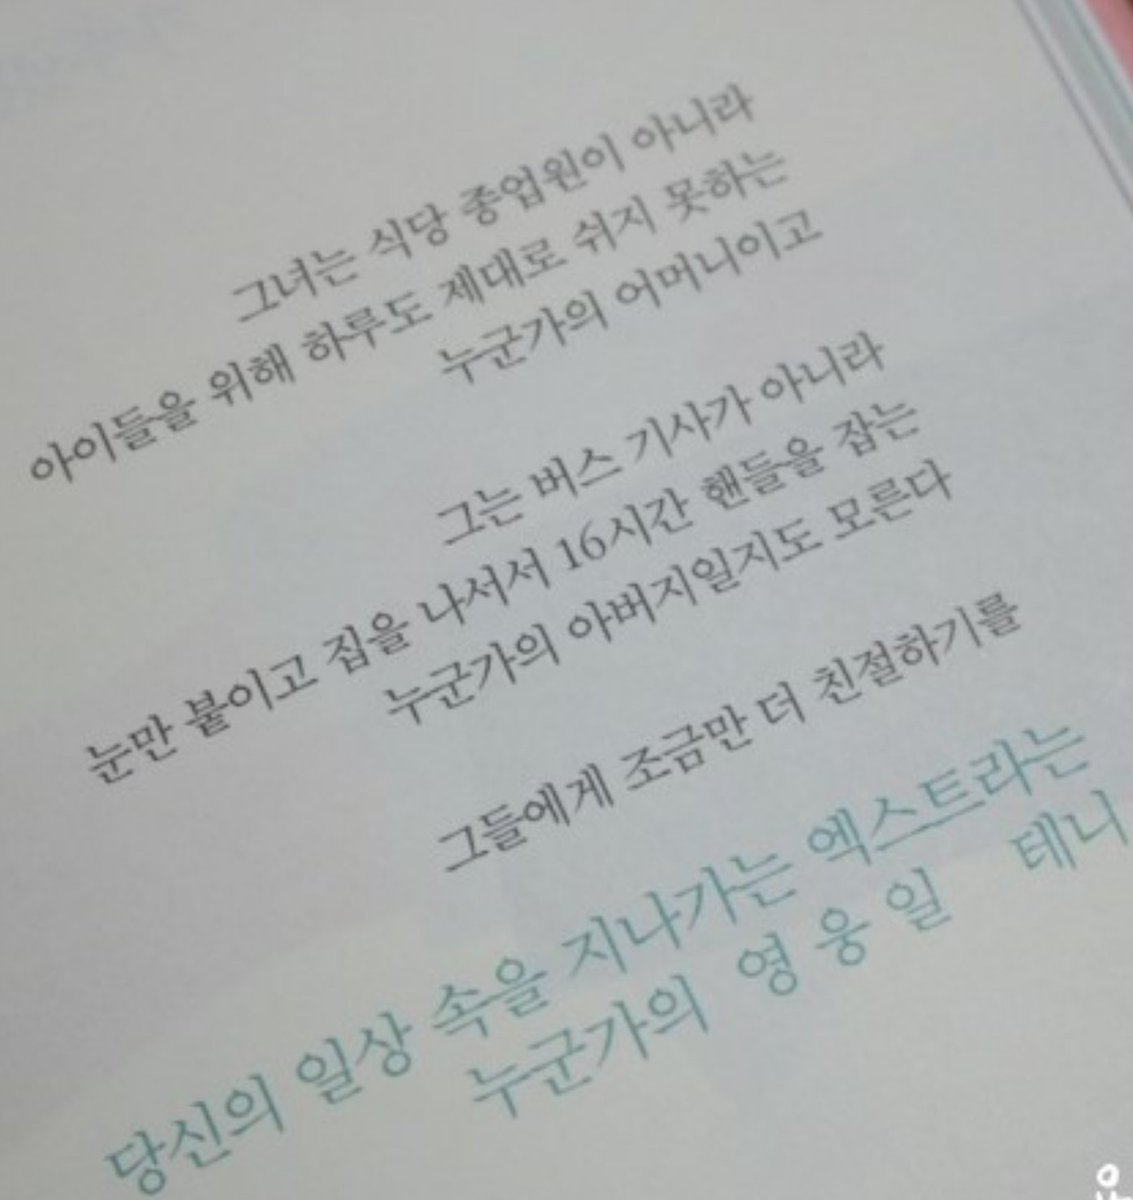 그녀는 식당 종업원이 아니라
아이들을 위해 하루도 제대로 쉬지 못하는
누군가의 어머니이고
그는 버스 기사가 아니라
눈만 붙이고 집을 나서서 16시간 핸들을 잡는
누군가의 아버지일지도 모른다
그들에게 조금만 더 친절하기를
당신의 일상 속을 지나가는 엑스트라는
누군가의 영웅일 테니